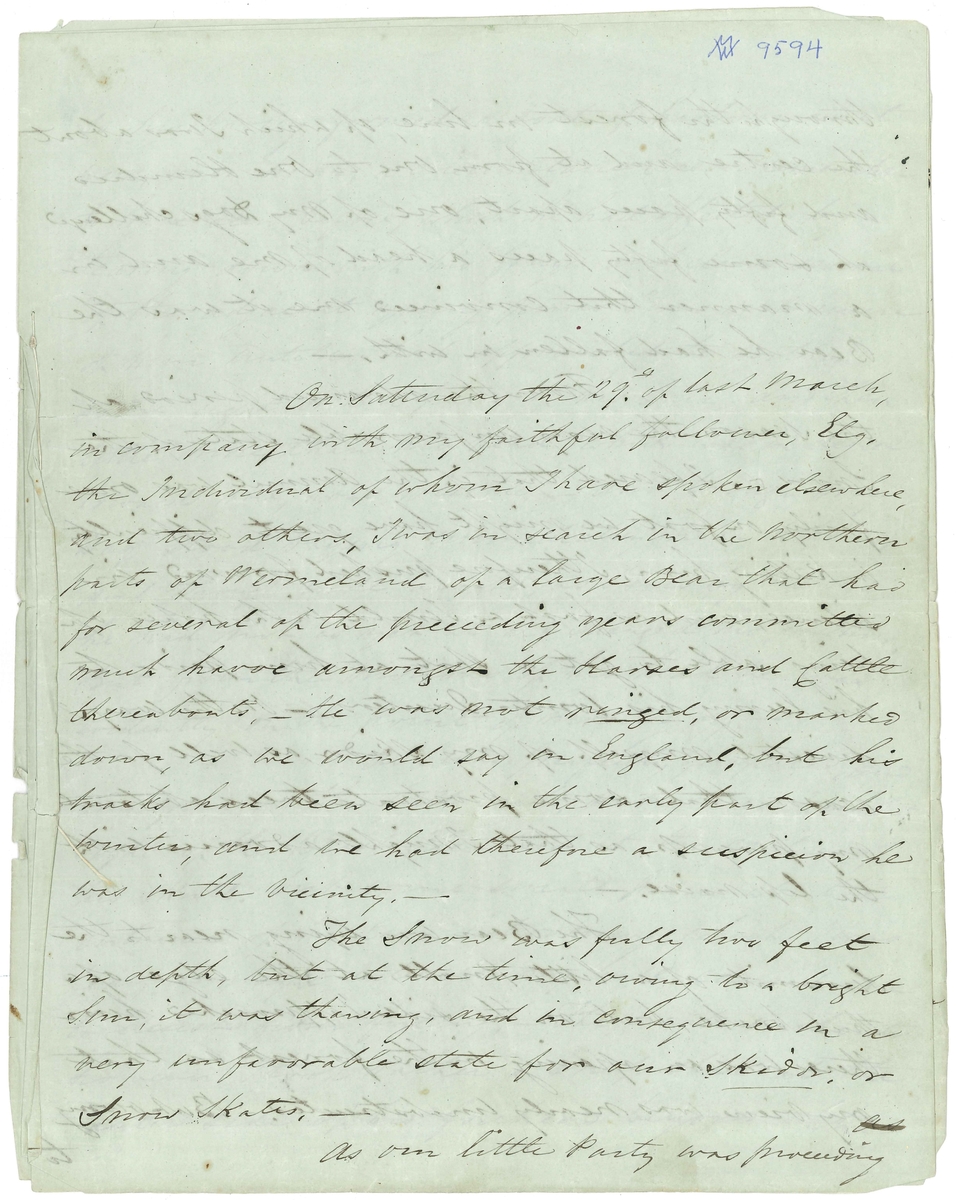 9594
On Saturday the 29th of last March,
in company with my faithful follower, Elg,
the Individual of whom I have spoken elsewhere,
and two others, I was in search in the Northern
parts of Wermeland of a large Bear that had
for several of the preceeding years committed
much havoc amongst the Horses and Cattle
thereabouts, — He was not ringed, or marked
down, as we would say in England, but his
tracks had been seen in the early part of the
Winter, and we had therefore a suspicion he
was in the Vicinity. —
The Snow was fully two feet
in depth, but at the time, owing to a bright
Sun, it was thawing, and in consequence in a
very unfavorable state for our Skidor, or
Snow Skates. —
as
As our little Party was proceeding